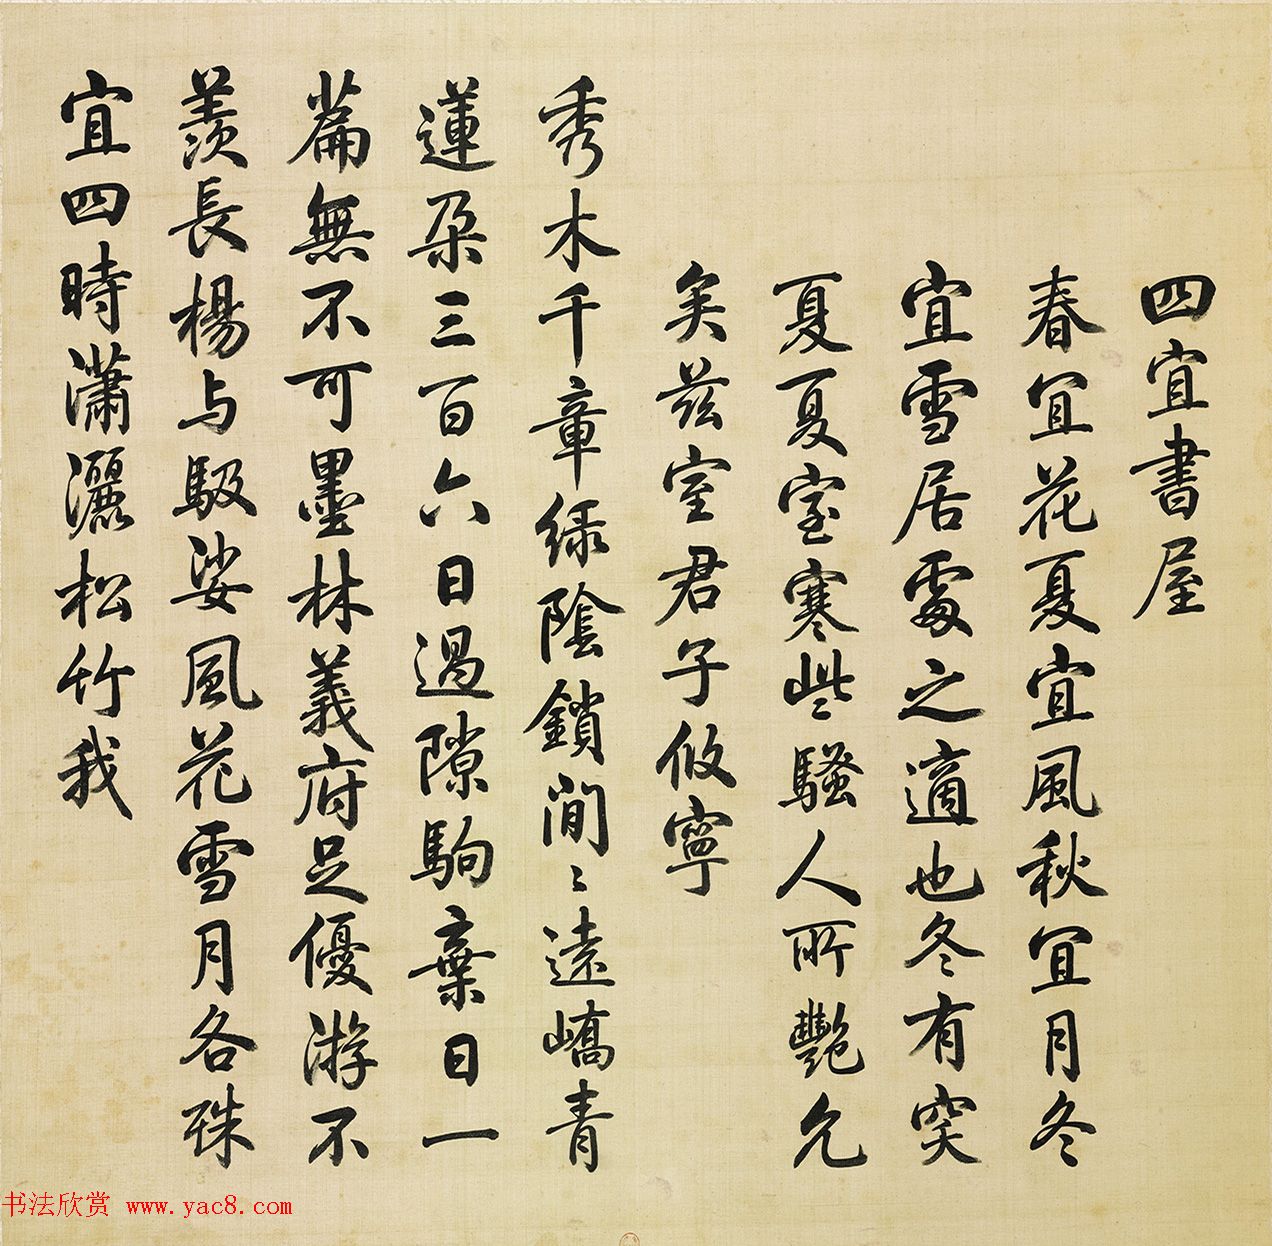 四宜書屋
春宜花夏宜風秋宜月冬
宜雪居處之適也冬有突
夏夏室寒些騷人所艷允
矣茲室君子攸寧
秀木千章綠陰鎖間〻遠嶠青
蓮朶三百六日過隙駒棄日一
篇無不可墨林義府足優游不
羨長楊与馺娑風花雪月各殊
宜四時瀟灑松竹我
书法欣赏 www.yac8.com